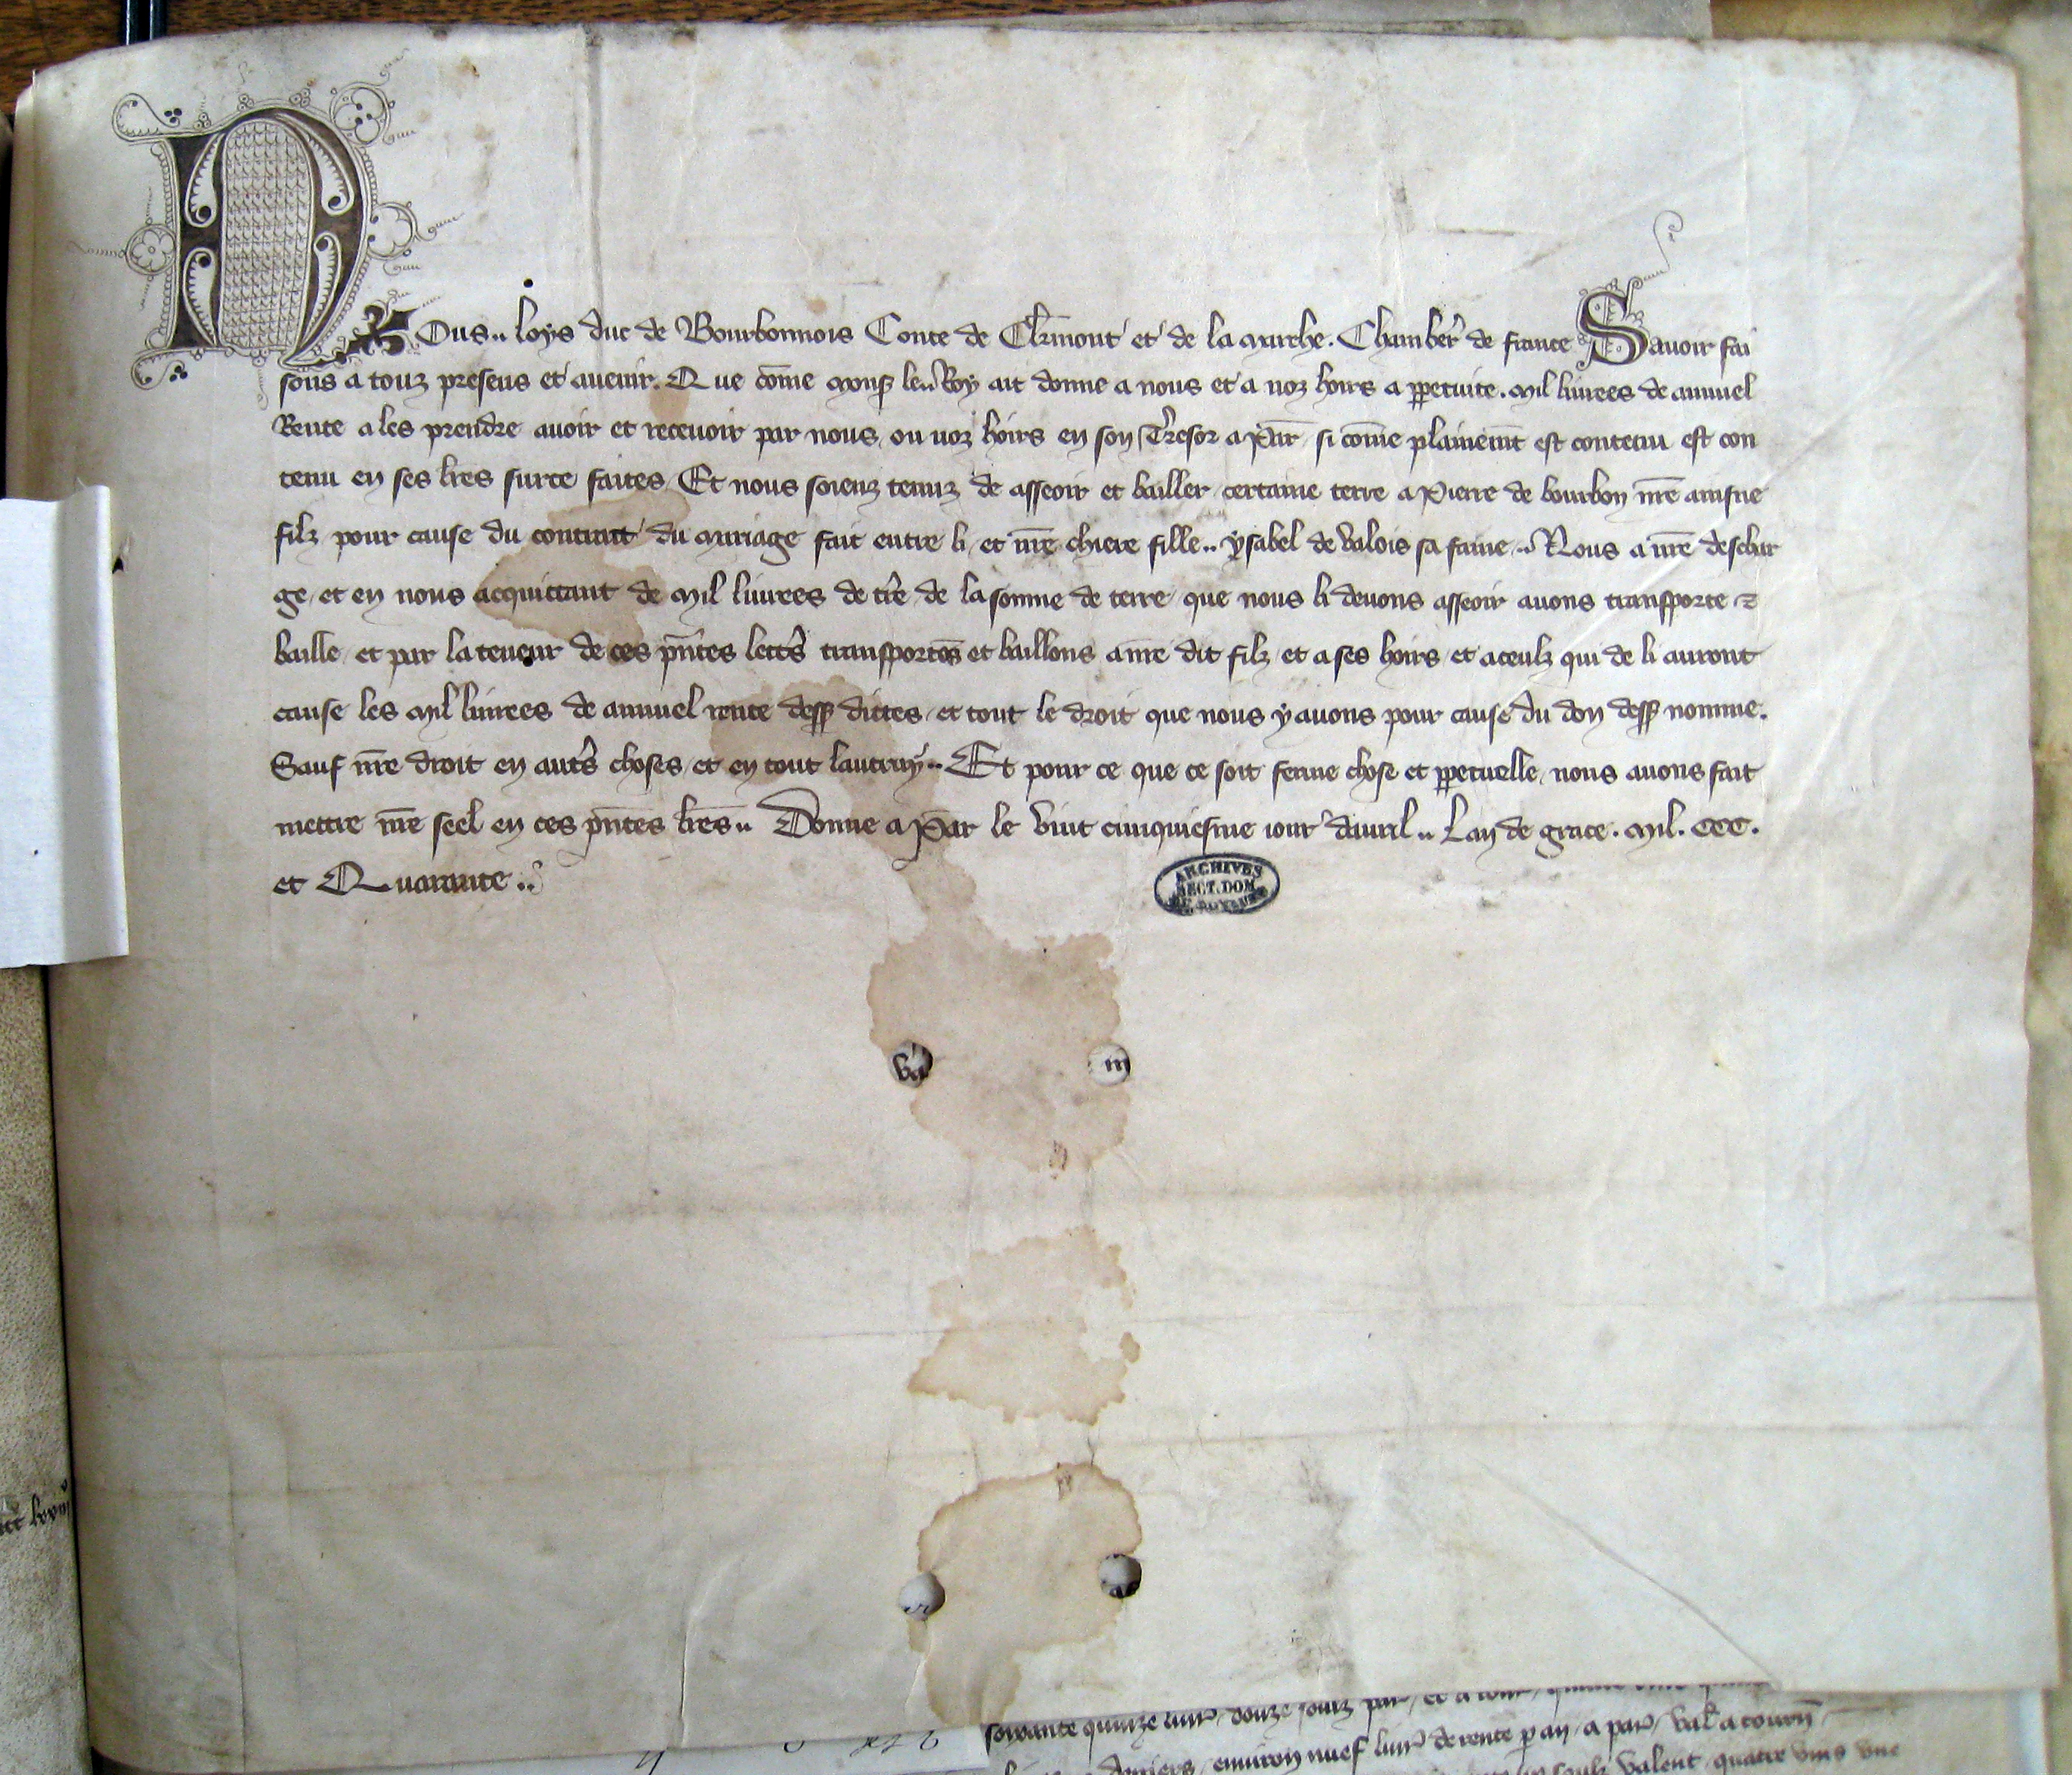 Nous .. Loys duc de Bourbonnois Conte de Cler̄mont et de la Marche. Chamber̄ de france Sauoir fai
sons a touz presens et auenir. Que com̄e Monss̄ le .. Roy ait donne a nous et a noz hoirs a p̱petuite. Mil liurees de annuel
Rente a les prendre auoir et receuoir par nous, ou noz hoirs en son Tresor a Par̄ si com̄e plainem̄t est contenu est con
tenu en ses lr̄es surce faites, Et nous soienz tenuz de asseoir et bailler certaine terre a Pierre de bourbon nr̄e ainsne
filz pour cause du contract du Mariage fait entre li, et nr̄e chiere fille .. ysabel de Valois sa fame .. Nous a nr̄e deschar
ge, et en nous acquittant de Mil liurees de tr̄e de la somme de terre que nous li deuons asseoir auons transporte ⁊
baille, et par la teneur de ces pn̄tes lettr̄s transportōs et baillons a nr̄e dit filz et a ses hoirs, et a ceulz qui de li auront
cause les Mil liurees de annuel rente dess̄ dictes, et tout le droit que nous y auons pour cause du don dess̄ nomme.
Sauf nr̄e droit en autr̄s choses, et en tout lautruy .. Et pour ce que ce soit ferme chose et p̱petuelle, nous auons fait
mettre nr̄e seel en ces pn̄tes lr̄es .. Donne a Par̄ le vint cinquiesme iour dauril .. Lan de grace. Mil. CCC.
et Quarante ..
ARCHIVES
SECT. DOM
DU ROYAUME
va
m
soixante quinze liur̄ douze soulz par̄
enuiron nuef liur̄ de rente p̱ an a par̄ val̄ a tourn̄
soulz valent quatre vins vne